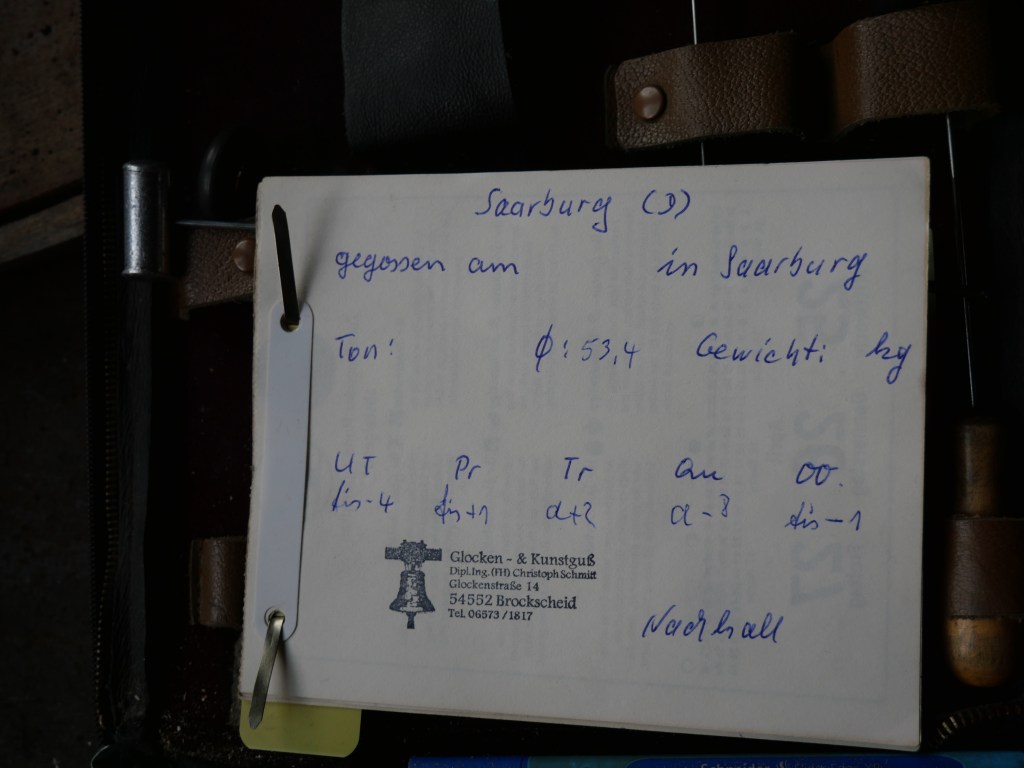 Saarburg (D)
gegossen am in Saarburg
Ton: ϕ: 53,4 Gewicht: kg
UT Pr Tr Qu OO.
fis-4 fis+1 a+2 fis-1
Glocken - & Kunstguß
Dipl.Ing.(FH) Christoph Schmitt
Glockenstraße 14
54552 Brockscheid
Tel. 06573 / 1817
Nachhall
Schneider